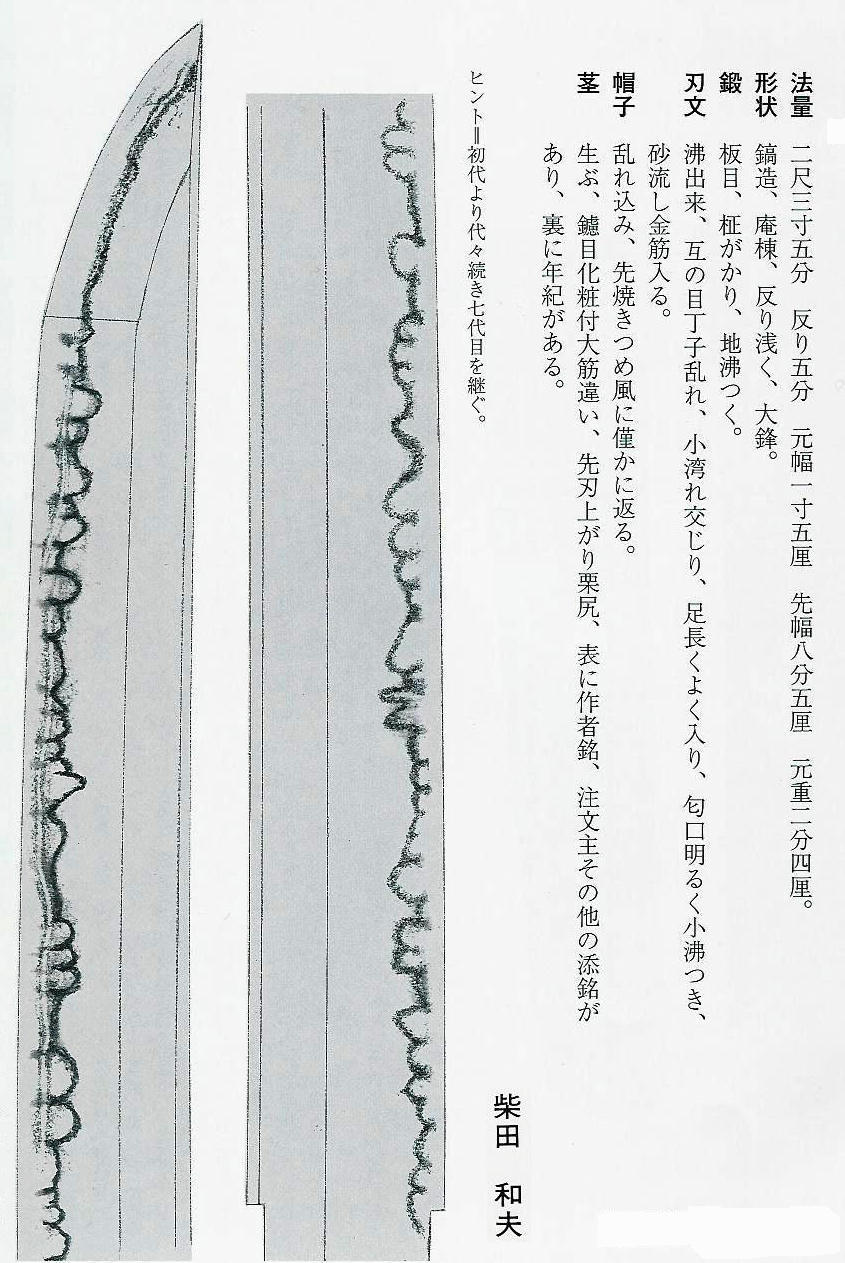 法量　二尺三寸五分　反り五分　元幅一寸五厘　先幅八分五厘　元重二分四厘。
形状　鎬造、庵棟、反り浅く、大鋒。
鍛　板目、柾がかり、地沸つく。
刃文　沸出来、互の目丁子乱れ、小湾れ交じり、足長くよく入り、匂口明るく小沸つき、
砂流し金筋入る。
帽子　乱れ込み、先焼きつめ風に僅かに返る。
茎　生ぶ、鑢目化粧付大筋違い、先刃上がり栗尻、表に作者銘、注文主その他の添銘が
あり、裏に年紀がある。
ヒント＝初代より代々続き七代目を継ぐ。
柴田　和夫